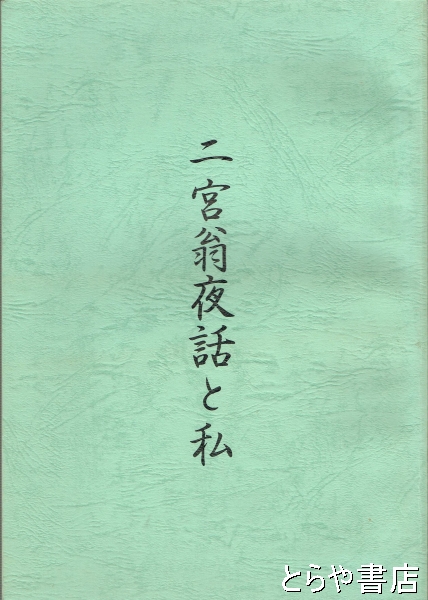 二宮翁夜話と私
とらや書店